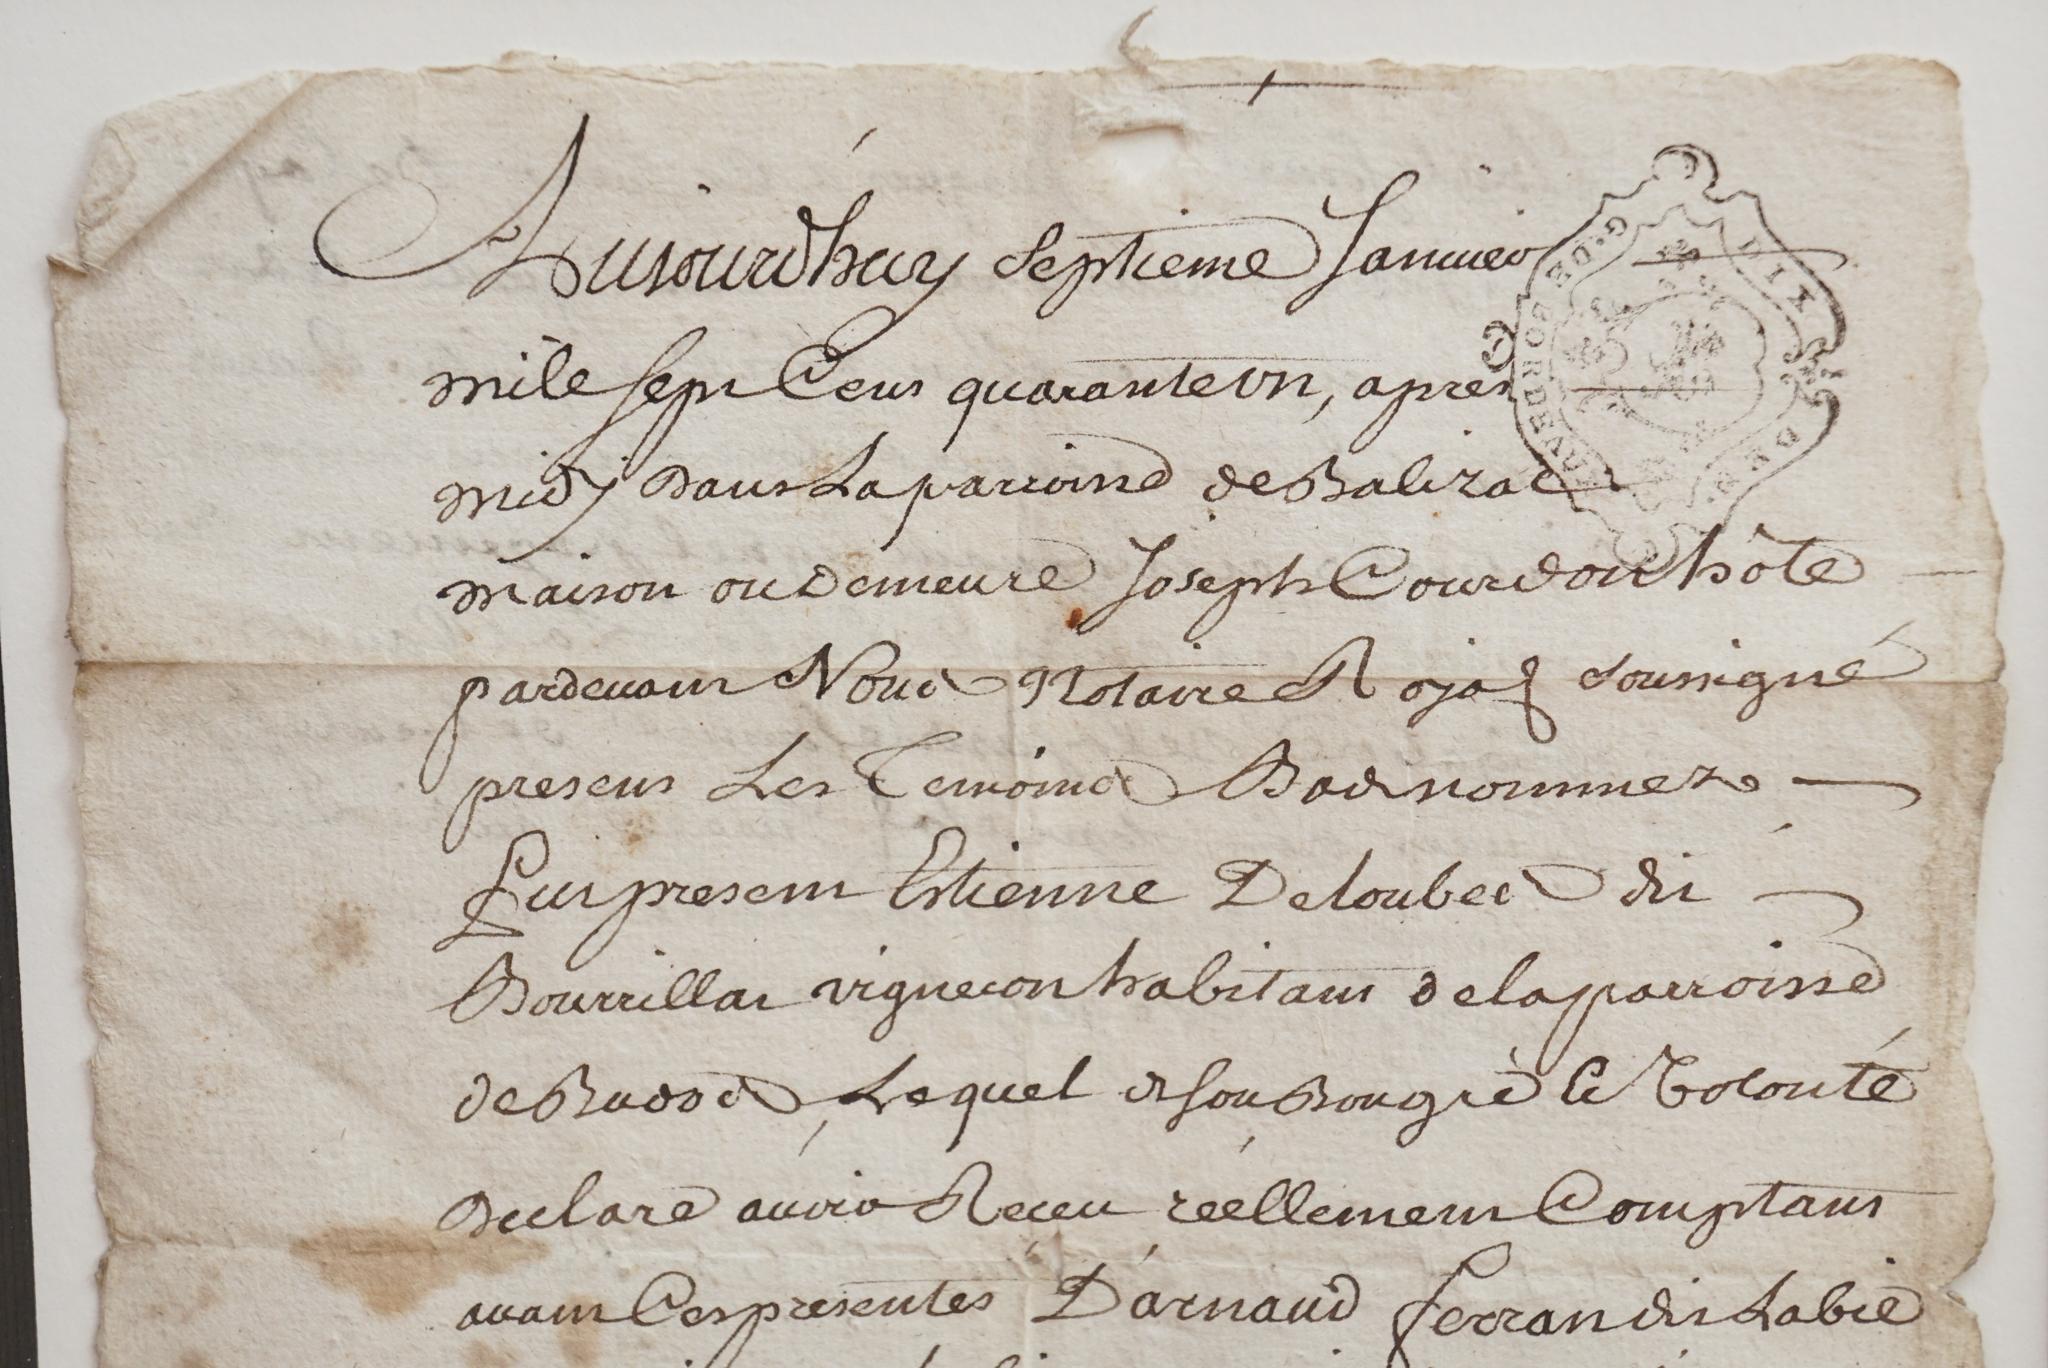 Aujourdhuy Septieme Januier
mile sept Cens quarante un, apres
midy dans La parroisse de Balizac
maison ou demeure Joseph Courdon hôte
pardeuant Nous Notaire Royal soussigné
presens Les Temoins Bas nommez
fut present Estienne Deloubes dit
Bourrillat vigneron habitant de la parroisse
de Budos, Lequel de son Bon gré et Volonté
declare auoir Receu réellement Comptant
auant Ces presentes D'arnaud ferran dit Labie
G. DE BORDEAUX
DIX DEN.